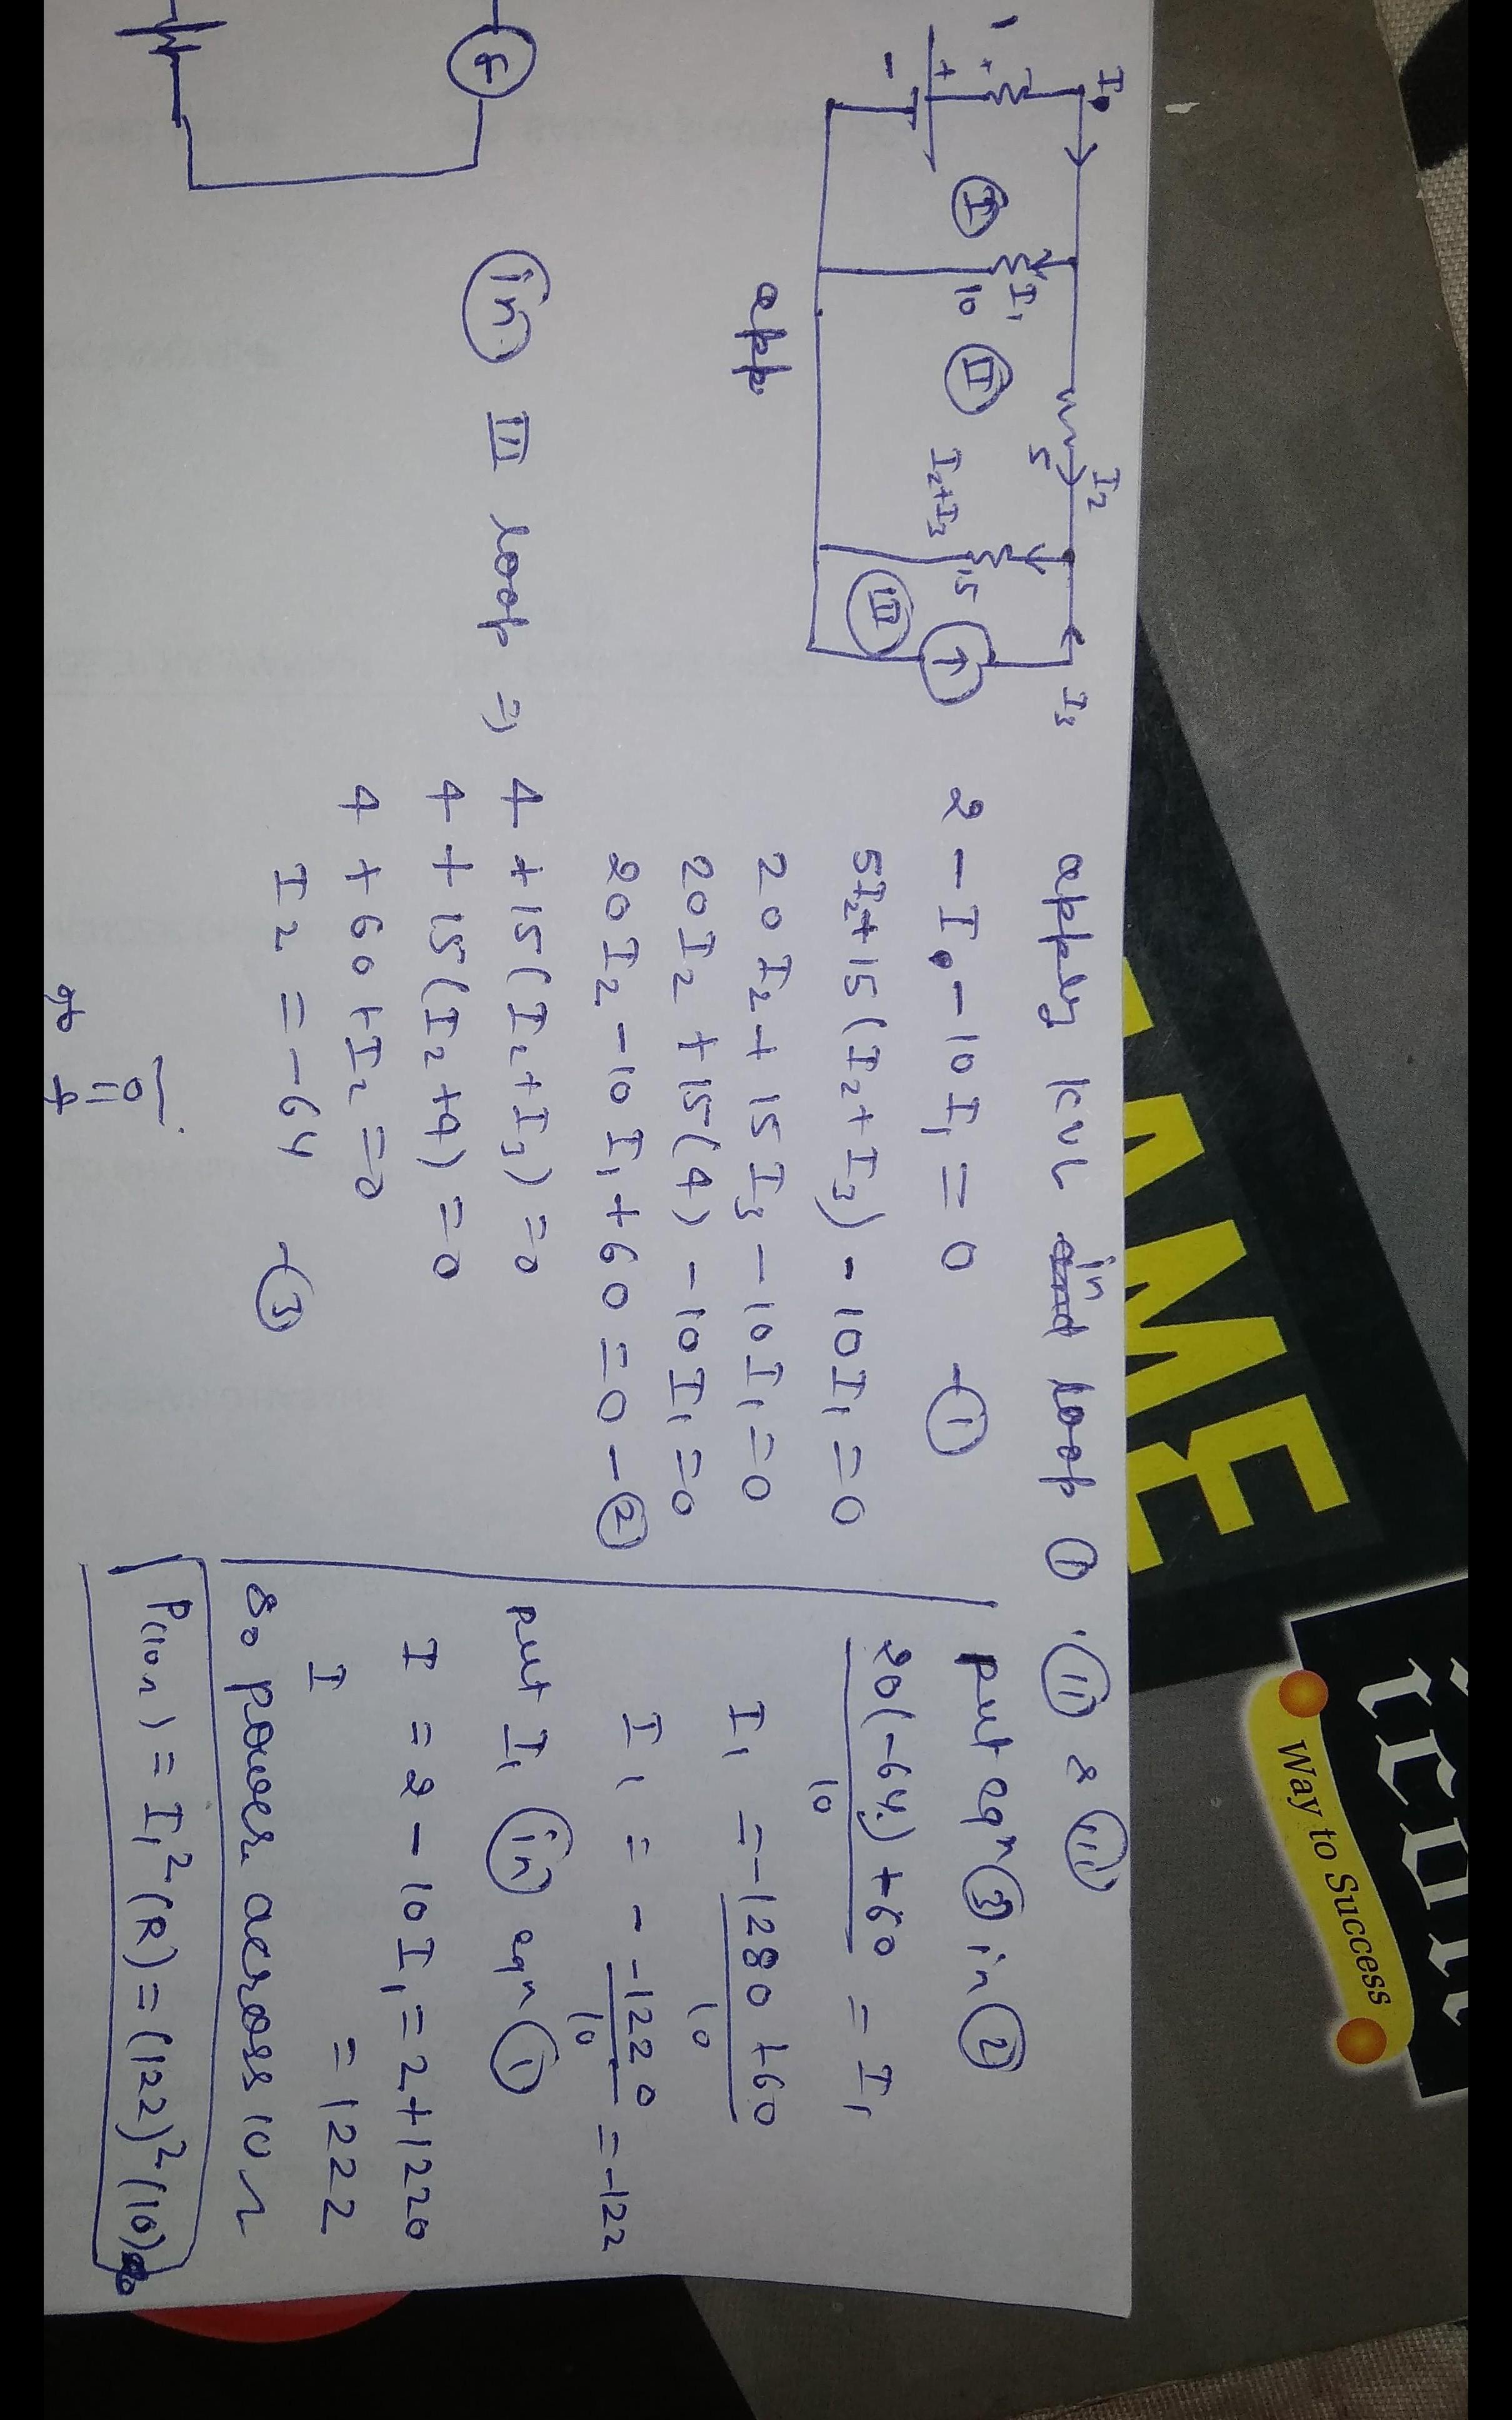 I.
I₁
10
I
II
5
I₂
I₂+I₃
15
III
I₃
+
-
app
apply KVL in loop ① (ii) & (iii)
2 - I. - 10I₁ = 0 -①
5I₂+15(I₂+I₃) - 10I₁ = 0
20I₂+15I₃ - 10I₁ = 0
20I₂ +15(4) - 10I₁ = 0
20I₂ - 10I₁ + 60 = 0 - ②
in III loop ⇒ 4 + 15(I₂+I₃) = 0
4 + 15(I₂+4) = 0
4 + 60 + I₂ = 0
I₂ = -64 -③
put eqⁿ ③ in ②
20(-64) + 60 / 10 = I₁
I₁ = -1280 + 60 / 10
I₁ = - -1220 / 10 = -122
put I₁ in eqⁿ ①
I = 2 - 10I₁ = 2+1220
I = 1222
So power across 10Ω
P(10Ω) = I₁²(R) = (122)²(10)
AME
Way to Success